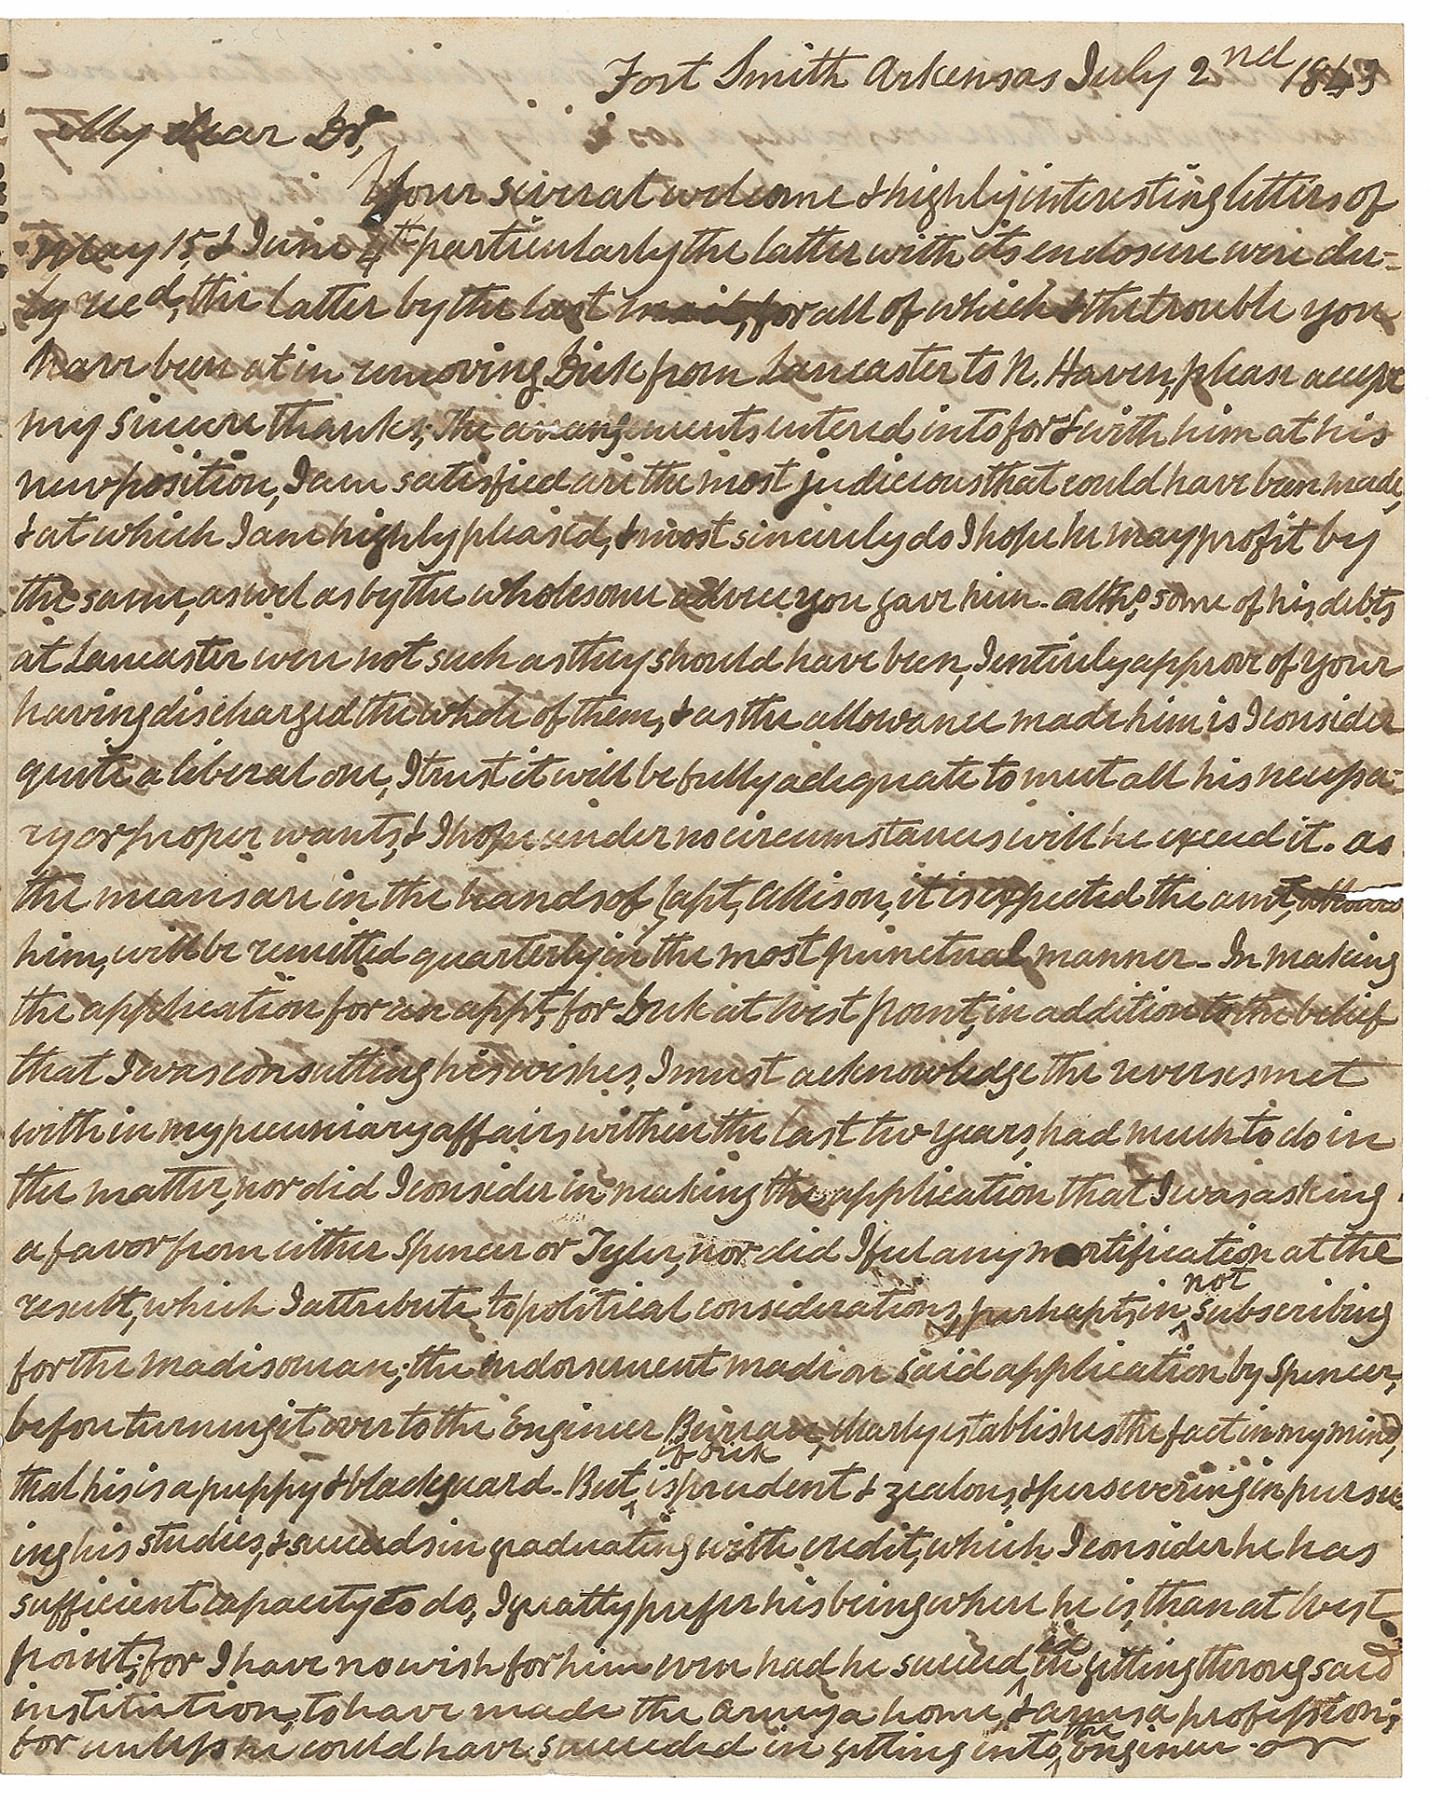 Fort Smith Arkansas July 2nd 1843
My dear Dr,
Your several welcome & highly interesting letters of
May 15, & June 4th particularly the latter with its enclosure were du-
ly recd, the latter by the last mail, for all of which & the trouble you
have been at in removing Dick from Lancaster to N. Haven, please accept
my sincere thanks; The arrangements entered into for & with him at his
new position, I am satisfied are the most judicious that could have been made,
& at which I am highly pleased, & most sincerely do I hope he may profit by
the same, as wel as by the wholesome advice you gave him. altho, some of his debts
at Lancaster were not such as they should have been, I entirely approve of your
having discharged the whole of them, & as the allowance made him is I consider
quite a liberal one, I trust it will be fully adequate to meet all his necessa-
ry or proper wants, & I hope under no circumstances will he exceed it. as
the means are in the hands of Capt, Allison, it is expected the amt, allowed
him, will be remitted quarterly in the most punctual manner - In making
the application for an appt, for Dick at West Point, in addition to the belief
that I was consulting his wishes, I must acknowledge the reverses met
with in my pecuniary affairs within the last two years, had much to do in
the matter, nor did I consider in making the application that I was asking
a favor from either Spencer or Tyler, nor did I feel any mortification at the
result, which I attribute to political considerations, perhaps, in not subscribing
for the Madisonian; the endorsement made on said application by Spencer,
before turning it over to the Engineer Bureau, clearly establishes the fact in my mind,
that his is a puppy & blackguard. But if Dick is prudent & zealous, & persevering in pursu-
ing his studies, & succeeds in graduating with credit, which I consider he has
sufficient capacity to do, I greatly prefer his being where he is, than at West
point; for I have no wish for him even had he succeeded in getting through said
institution, to have made the army a home, & arms a profession;
for unless he could have succeeded in getting into the Engineer or